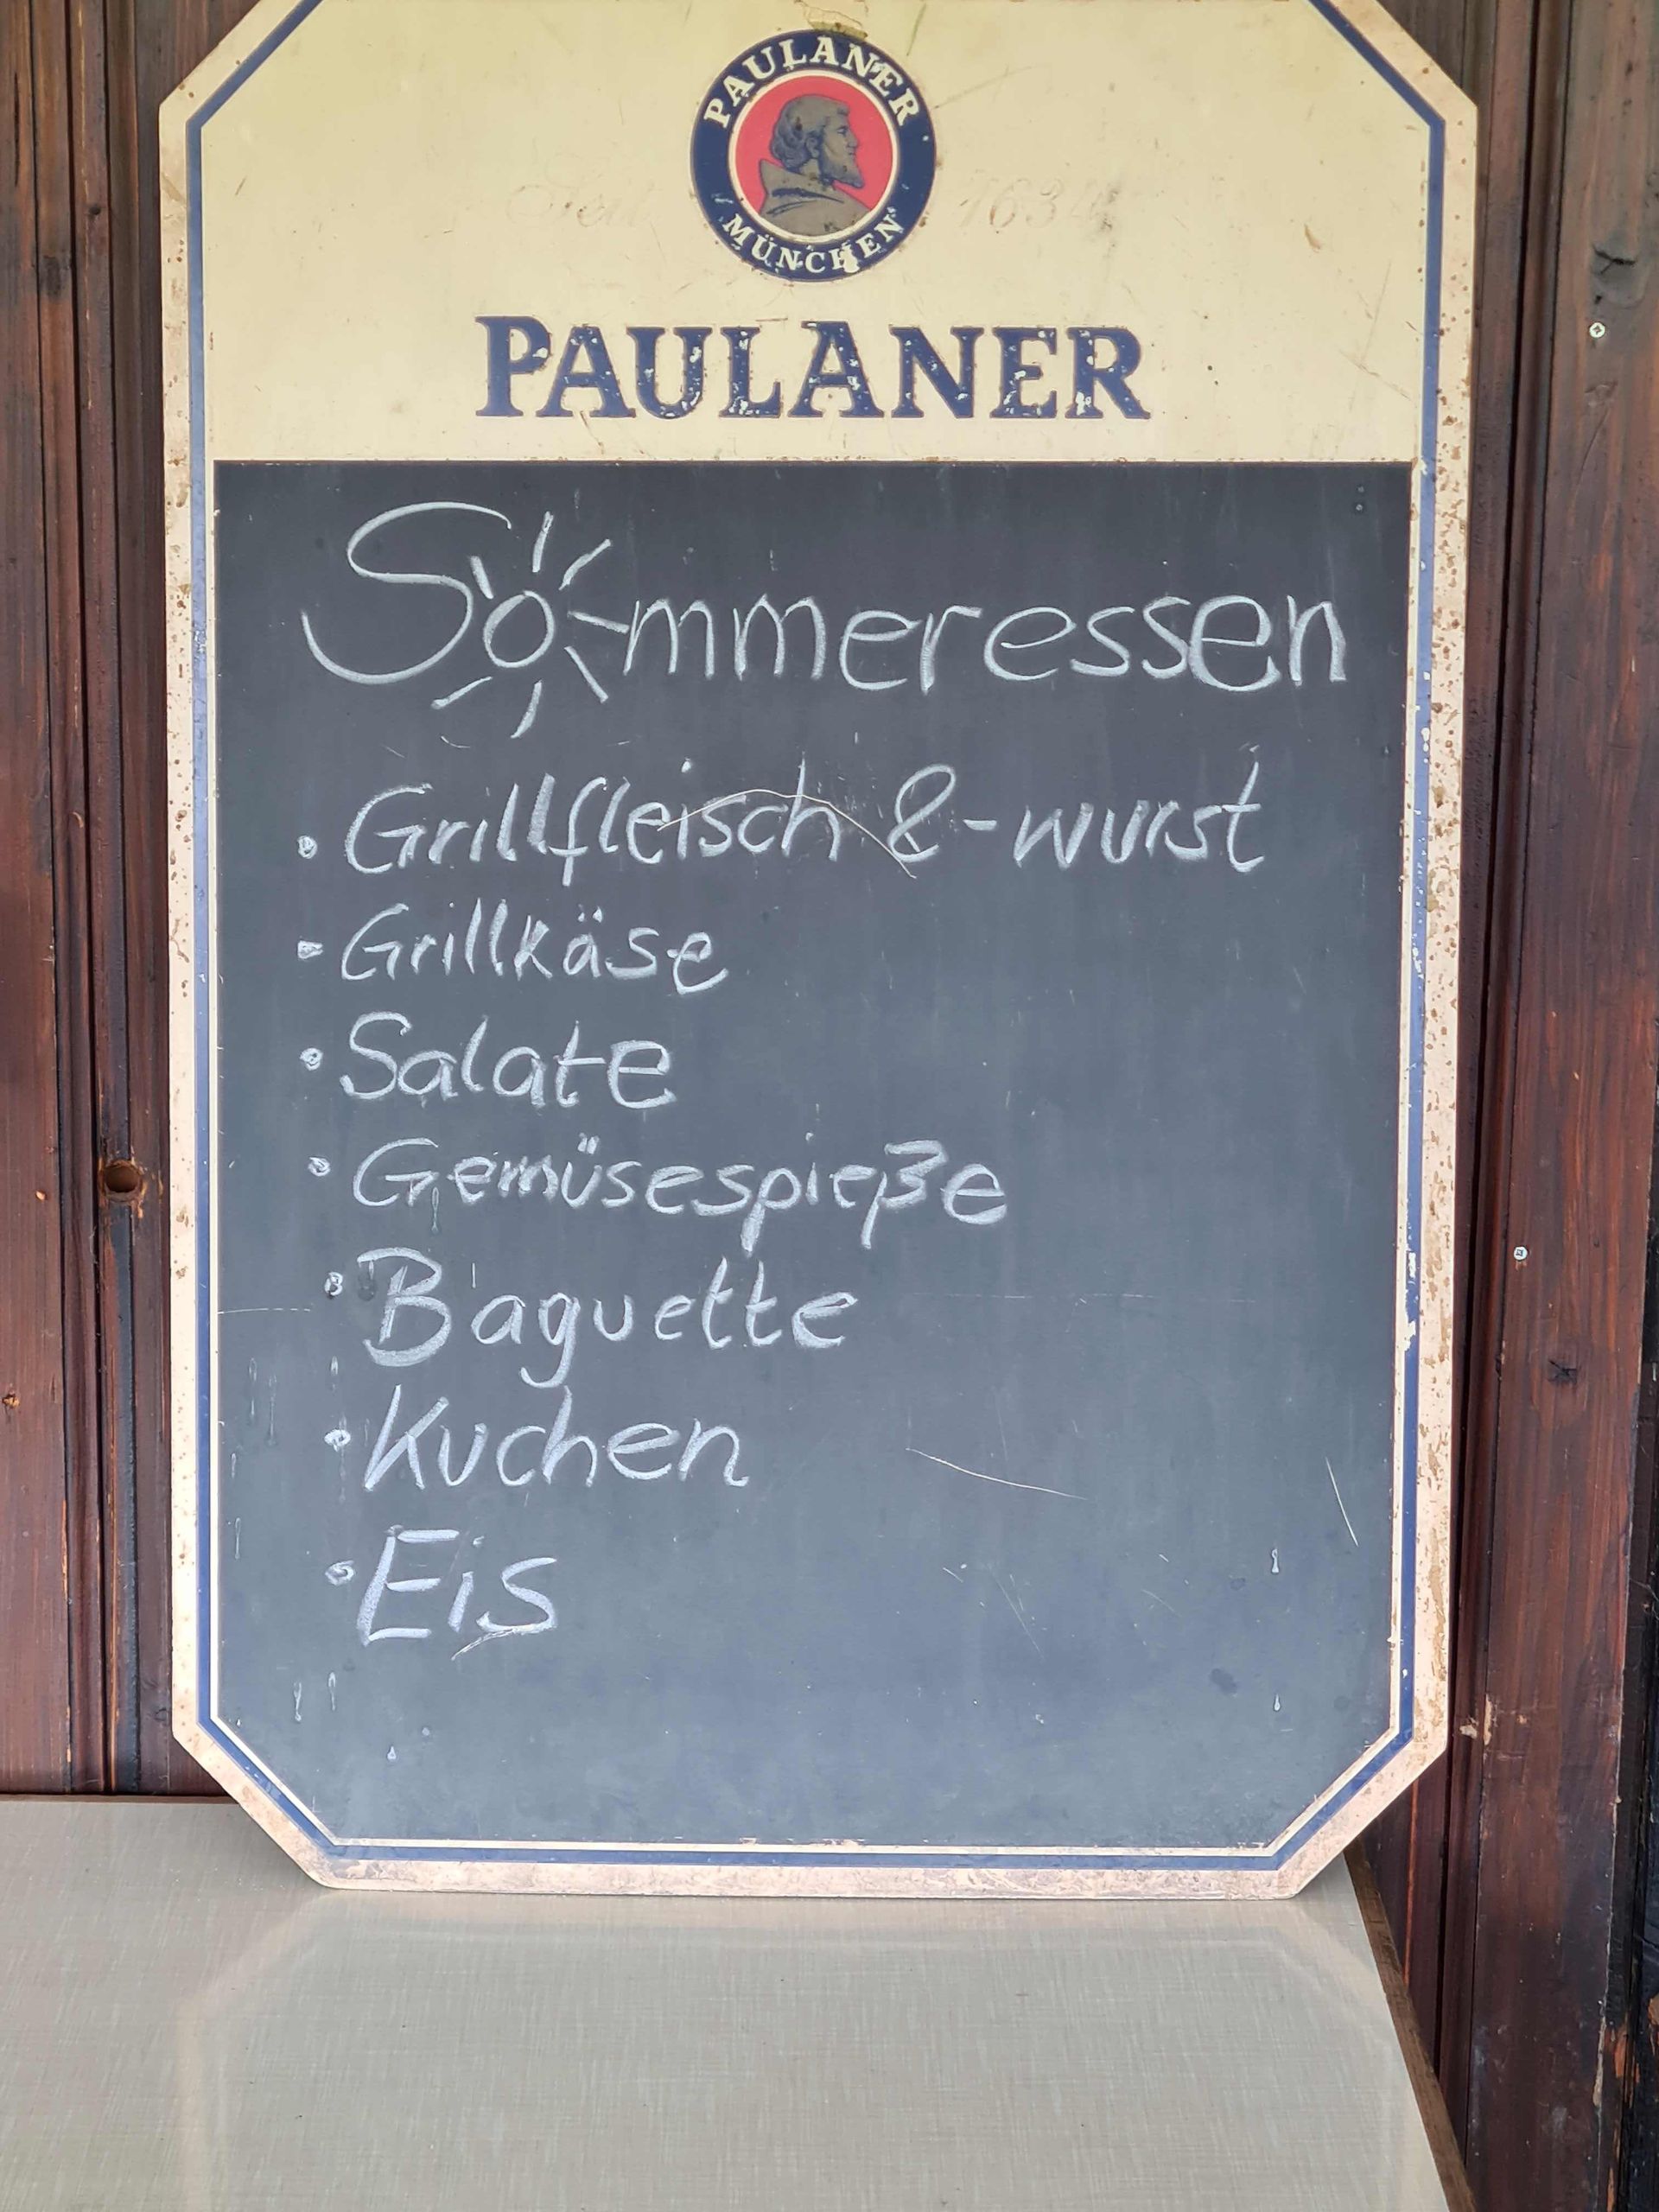 PAULANER
MÜNCHEN
Seit 1634
PAULANER
Sommeressen
• Grillfleisch & -wurst
• Grillkäse
• Salate
• Gemüsespieße
• Baguette
• Kuchen
• Eis